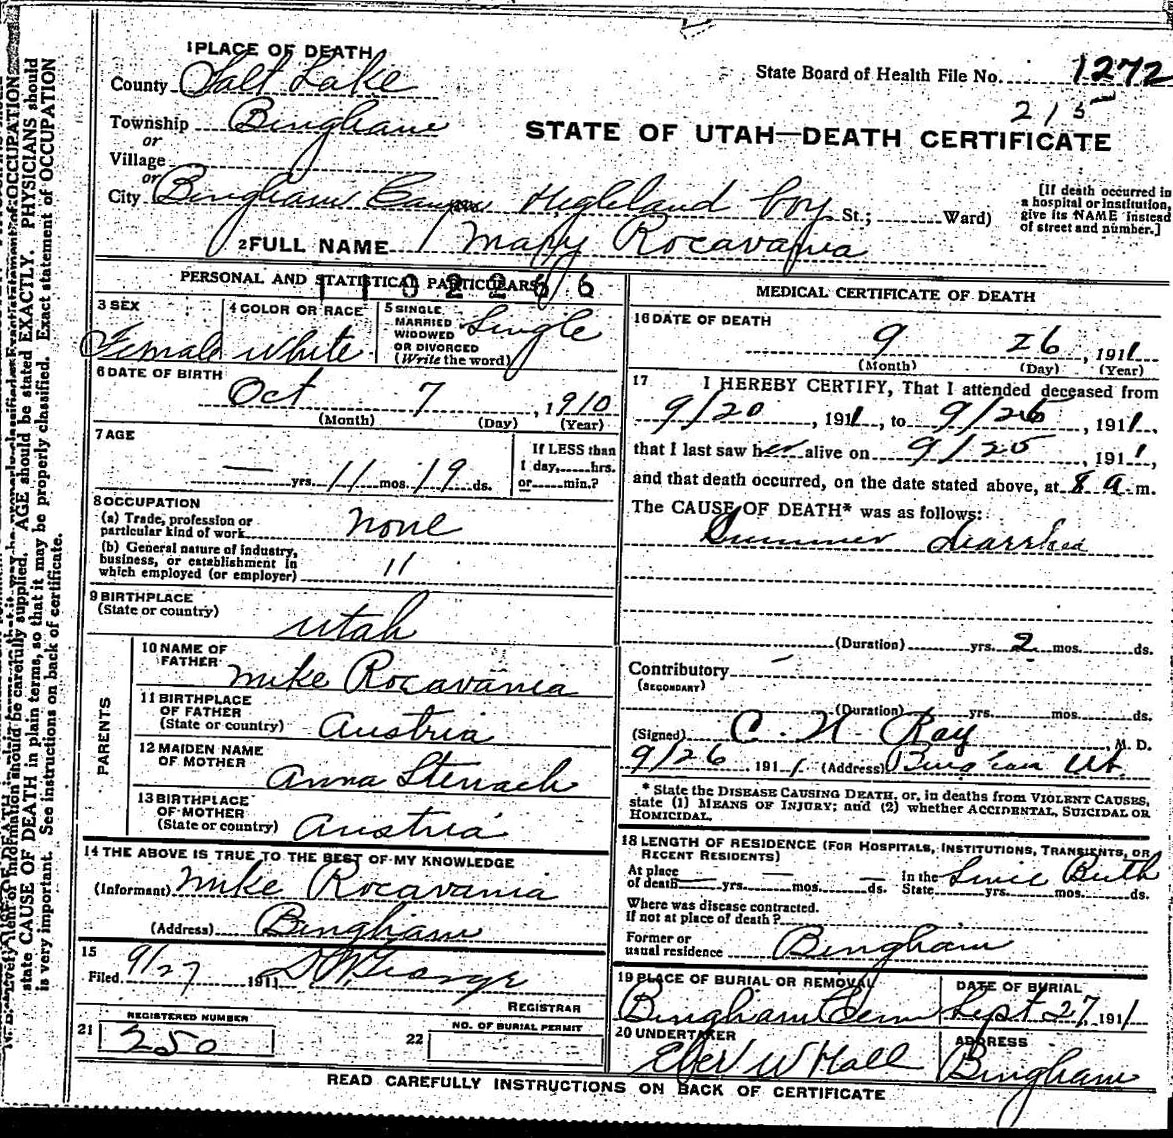 1 PLACE OF DEATH
County Salt Lake
State Board of Health File No. 1272
215
Township Bingham
or
STATE OF UTAH—DEATH CERTIFICATE
Village
or
City Bingham Canyon Highland boy St.; Ward)
[If death occurred in a hospital or institution, give its NAME instead of street and number.]
2 FULL NAME Mary Rocavania
PERSONAL AND STATISTICAL PARTICULARS
1102266
3 SEX
Female
4 COLOR OR RACE
White
5 SINGLE, MARRIED WIDOWED OR DIVORCED (Write the word)
Single
6 DATE OF BIRTH
Oct 7, 1910
(Month) (Day) (Year)
7 AGE
— yrs. 11 mos. 19 ds.
If LESS than
1 day, hrs.
or min.?
8 OCCUPATION
(a) Trade, profession or particular kind of work none
(b) General nature of industry, business, or establishment in which employed (or employer) 11
9 BIRTHPLACE
(State or country) Utah
PARENTS
10 NAME OF FATHER Mike Rocavania
11 BIRTHPLACE OF FATHER (State or country) Austria
12 MAIDEN NAME OF MOTHER Anna Stenach
13 BIRTHPLACE OF MOTHER (State or country) Austria
14 THE ABOVE IS TRUE TO THE BEST OF MY KNOWLEDGE
(Informant) Mike Rocavania
(Address) Bingham
15
Filed 9/27 1911
REGISTRAR
21
REGISTERED NUMBER
250
22
NO. OF BURIAL PERMIT
MEDICAL CERTIFICATE OF DEATH
16 DATE OF DEATH
9 26, 1911
(Month) (Day) (Year)
17 I HEREBY CERTIFY, That I attended deceased from
9/20, 1911, to 9/26, 1911,
that I last saw her alive on 9/25, 1911,
and that death occurred, on the date stated above, at 8 a m.
The CAUSE OF DEATH* was as follows:
Summer diarrhea
(Duration) yrs. 2 mos. ds.
Contributory —
(SECONDARY)
(Duration) yrs. mos. ds.
(Signed) C. N. Ray, M. D.
9/26 1911 (Address) Bingham Ut.
* State the DISEASE CAUSING DEATH, or, in deaths from VIOLENT CAUSES, state (1) MEANS OF INJURY; and (2) whether ACCIDENTAL, SUICIDAL OR HOMICIDAL.
18 LENGTH OF RESIDENCE (FOR HOSPITALS, INSTITUTIONS, TRANSIENTS, OR RECENT RESIDENTS)
At place of death — yrs. — mos. — ds. In the State Since Birth yrs. mos. ds.
Where was disease contracted.
if not at place of death?
Former or usual residence Bingham
19 PLACE OF BURIAL OR REMOVAL
Bingham Cem
DATE OF BURIAL
Sept 27, 1911
20 UNDERTAKER
Eber W Hall
ADDRESS
Bingham
READ CAREFULLY INSTRUCTIONS ON BACK OF CERTIFICATE
information should be carefully supplied. AGE should be stated EXACTLY. PHYSICIANS should
state CAUSE OF DEATH in plain terms, so that it may be properly classified. Exact statement of OCCUPATION
is very important. See instructions on back of certificate.